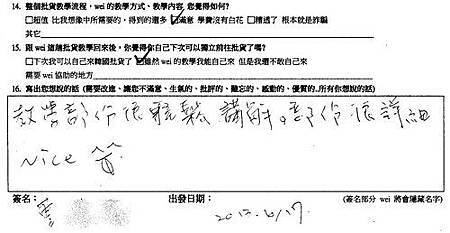 14. 整個批貨教學流程，wei 的教學方式、教學內容, 您覺得如何?
□超值 比我想像中所需要的，得到的還多 ☑滿意 學費沒有白花 □糟透了 根本就是詐騙
其它
15. 跟 wei 這趟批貨教學回來後，你覺得你自己下次可以獨立前往批貨了嗎?
□下次我可以自己來韓國批貨了 ☑雖然 wei 的教學我能自己來 但是我還不敢自己來
需要 wei 協助的地方
16. 寫出您想說的話 (需要改進、讓您不滿意、生氣的、批評的、難忘的、感動的、優質的...所有你想說的話)
教學部份很輕鬆 講解部份很詳細
Nice
簽名: 出發日期: (簽名部分 wei 將會隱藏名字)
2012.6/17.